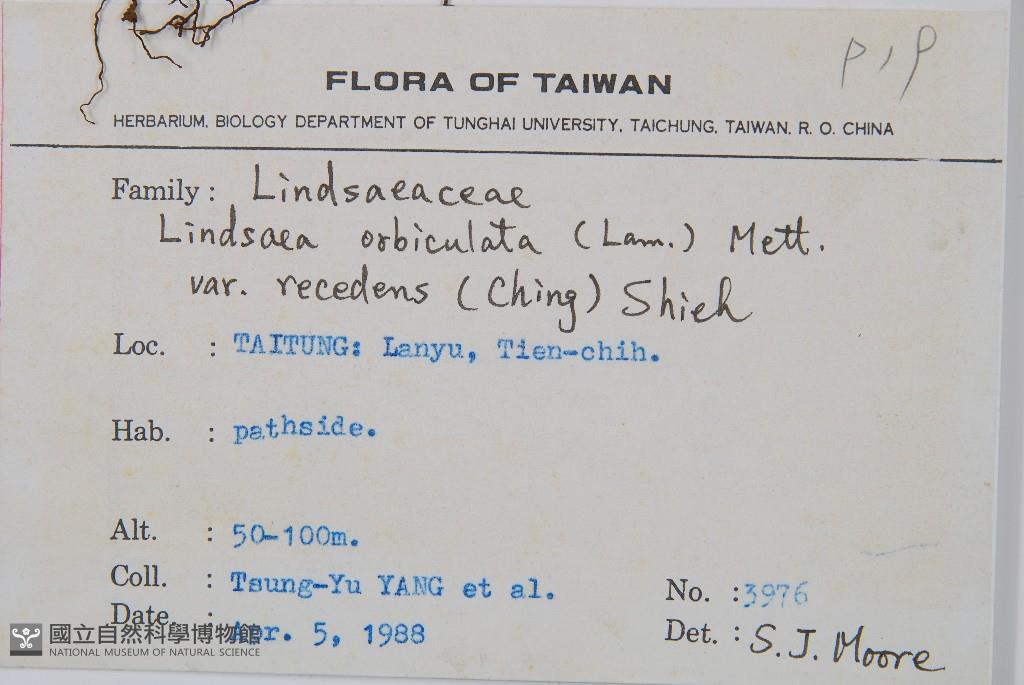 P, P
FLORA OF TAIWAN
HERBARIUM, BIOLOGY DEPARTMENT OF TUNGHAI UNIVERSITY, TAICHUNG, TAIWAN, R. O. CHINA
Family : Lindsaeaceae
Lindsaea orbiculata (Lam.) Mett.
var. recedens (Ching) Shieh
Loc. : TAITUNG: Lanyu, Tien-chih.
Hab. : pathside.
Alt. : 50-100m.
Coll. : Tsung-Yu YANG et al.
No. : 3976
Date : Apr. 5, 1988
Det. : S. J. Moore
國立自然科學博物館
NATIONAL MUSEUM OF NATURAL SCIENCE